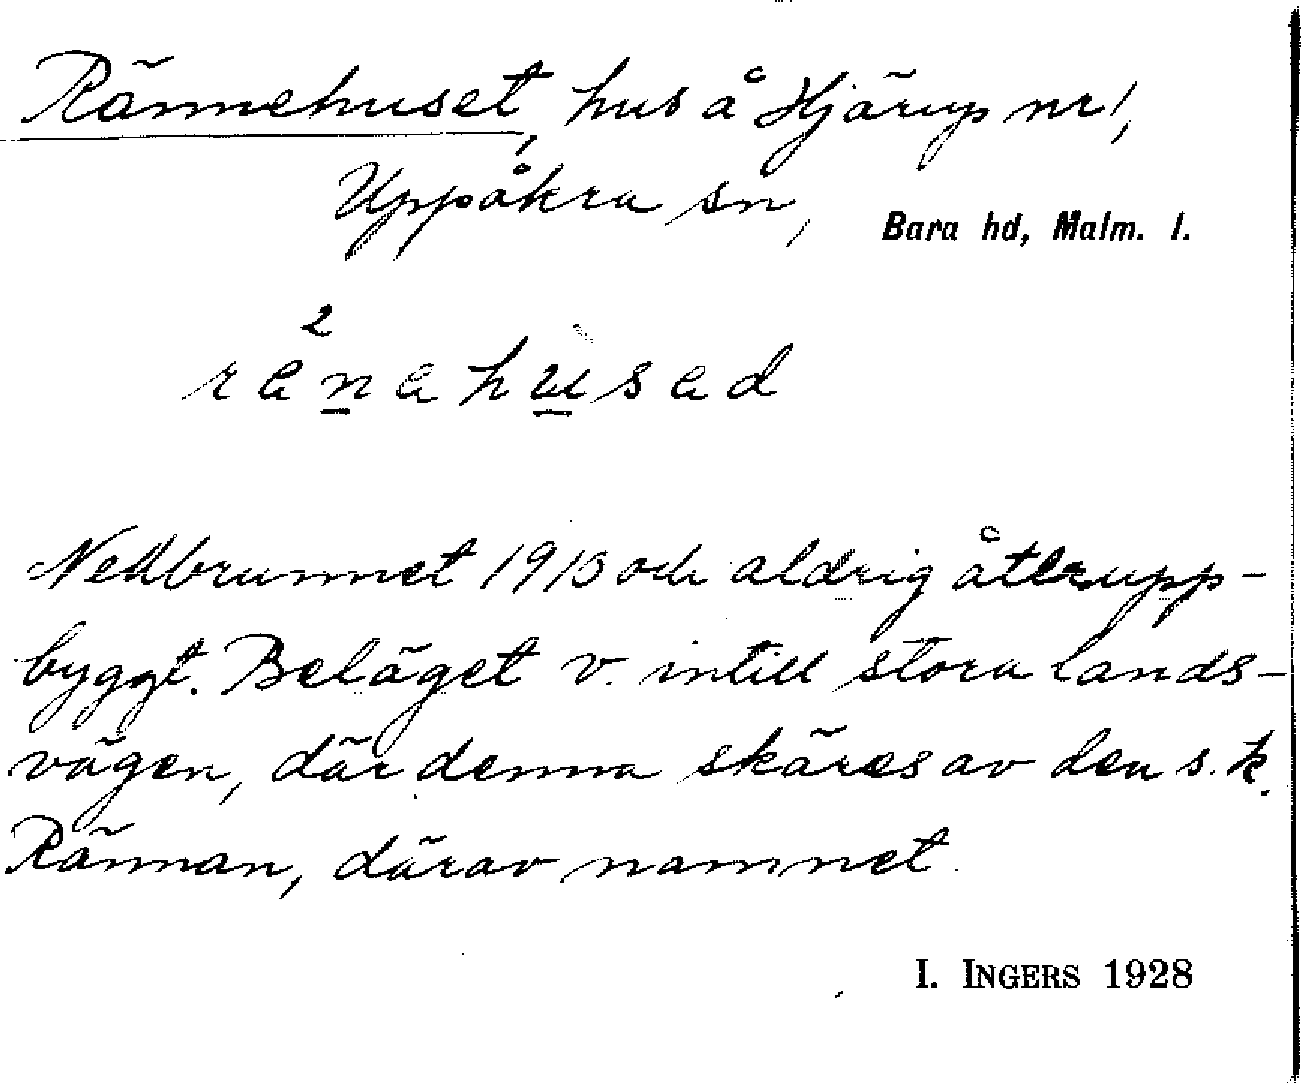 Rännehuset, hus å Hjärup nr 1,
Uppåkra sn, Bara hd, Malm. l.
2
ränahusad
Nedbrunnet 1910 och aldrig återupp-
byggt. Beläget v. intill stora lands-
vägen, där denna skäres av den s.k.
Rännan, därav namnet.
I. INGERS 1928